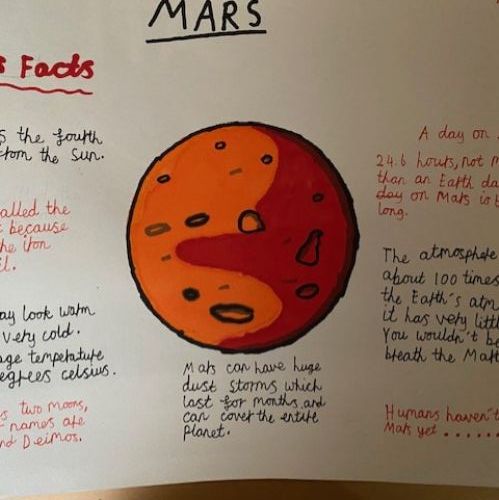 MARS
s Facts
s the fourth
from the sun.
called the
because
he iron
il.
ay look warm
very cold.
age temperature
egrees celsius.
s two moons,
names are
nd Deimos.
Mars can have huge
dust storms which
last for months and
can cover the entire
planet.
A day on
24.6 hours, not m
than an Earth da
day on Mars is t
long.
The atmosphere
about 100 times
the Earth's atm
it has very littl
You wouldn't be
breath the Mar
Humans haven't
Mars yet ......